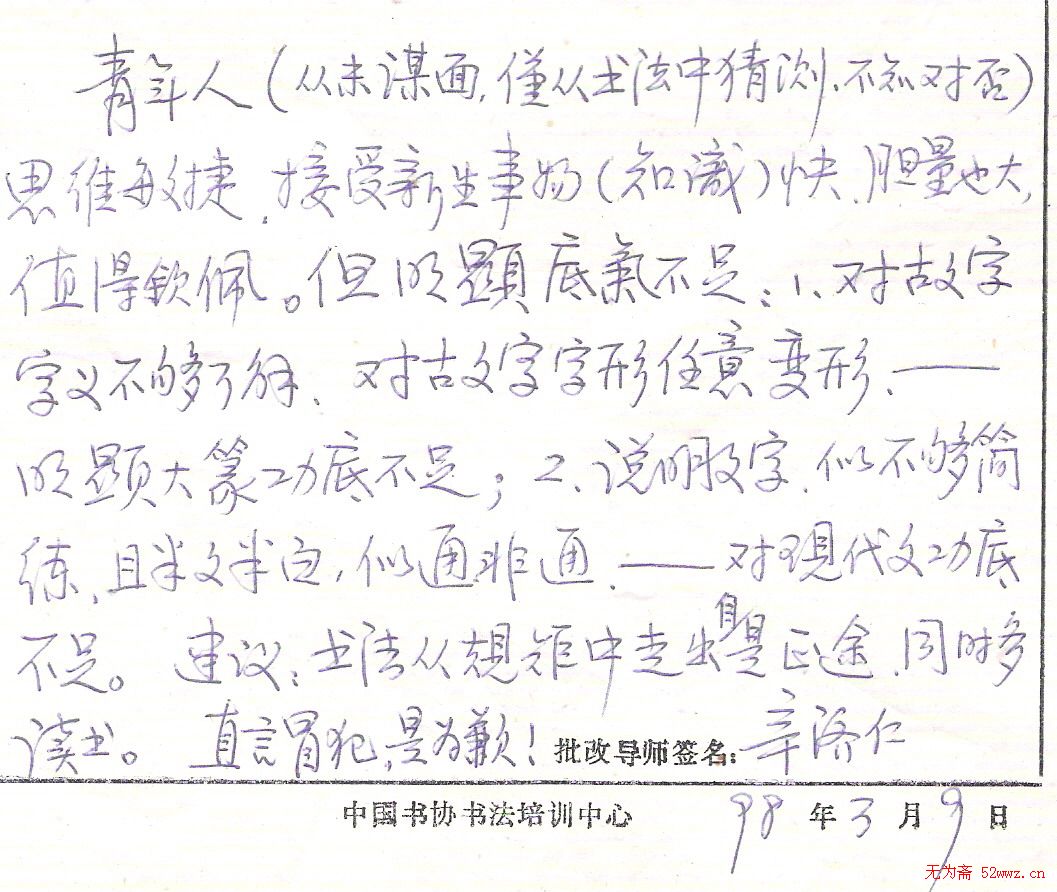 青年人(从未谋面,僅从书法中猜测,不知对否)
思维敏捷,接受新生事物(知識)快、胆量也大,
值得钦佩。但明顯底氣不足:1、对古文字
字义不够了解、对古文字字形任意变形、——
明显大篆功底不足;2、说明文字、似不够简
练、且半文半白,似通非通、——对现代文功底
不足。建议:书法从規矩中走出自是正途、同时多
读书。直言冒犯,是为歉!批改导师签名:辛济仁
中国书协书法培训中心 98年3月9日
无为斋 52wwz.cn